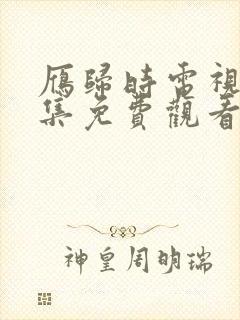 雁歸時電視
集免費觀看
神皇周明瑞